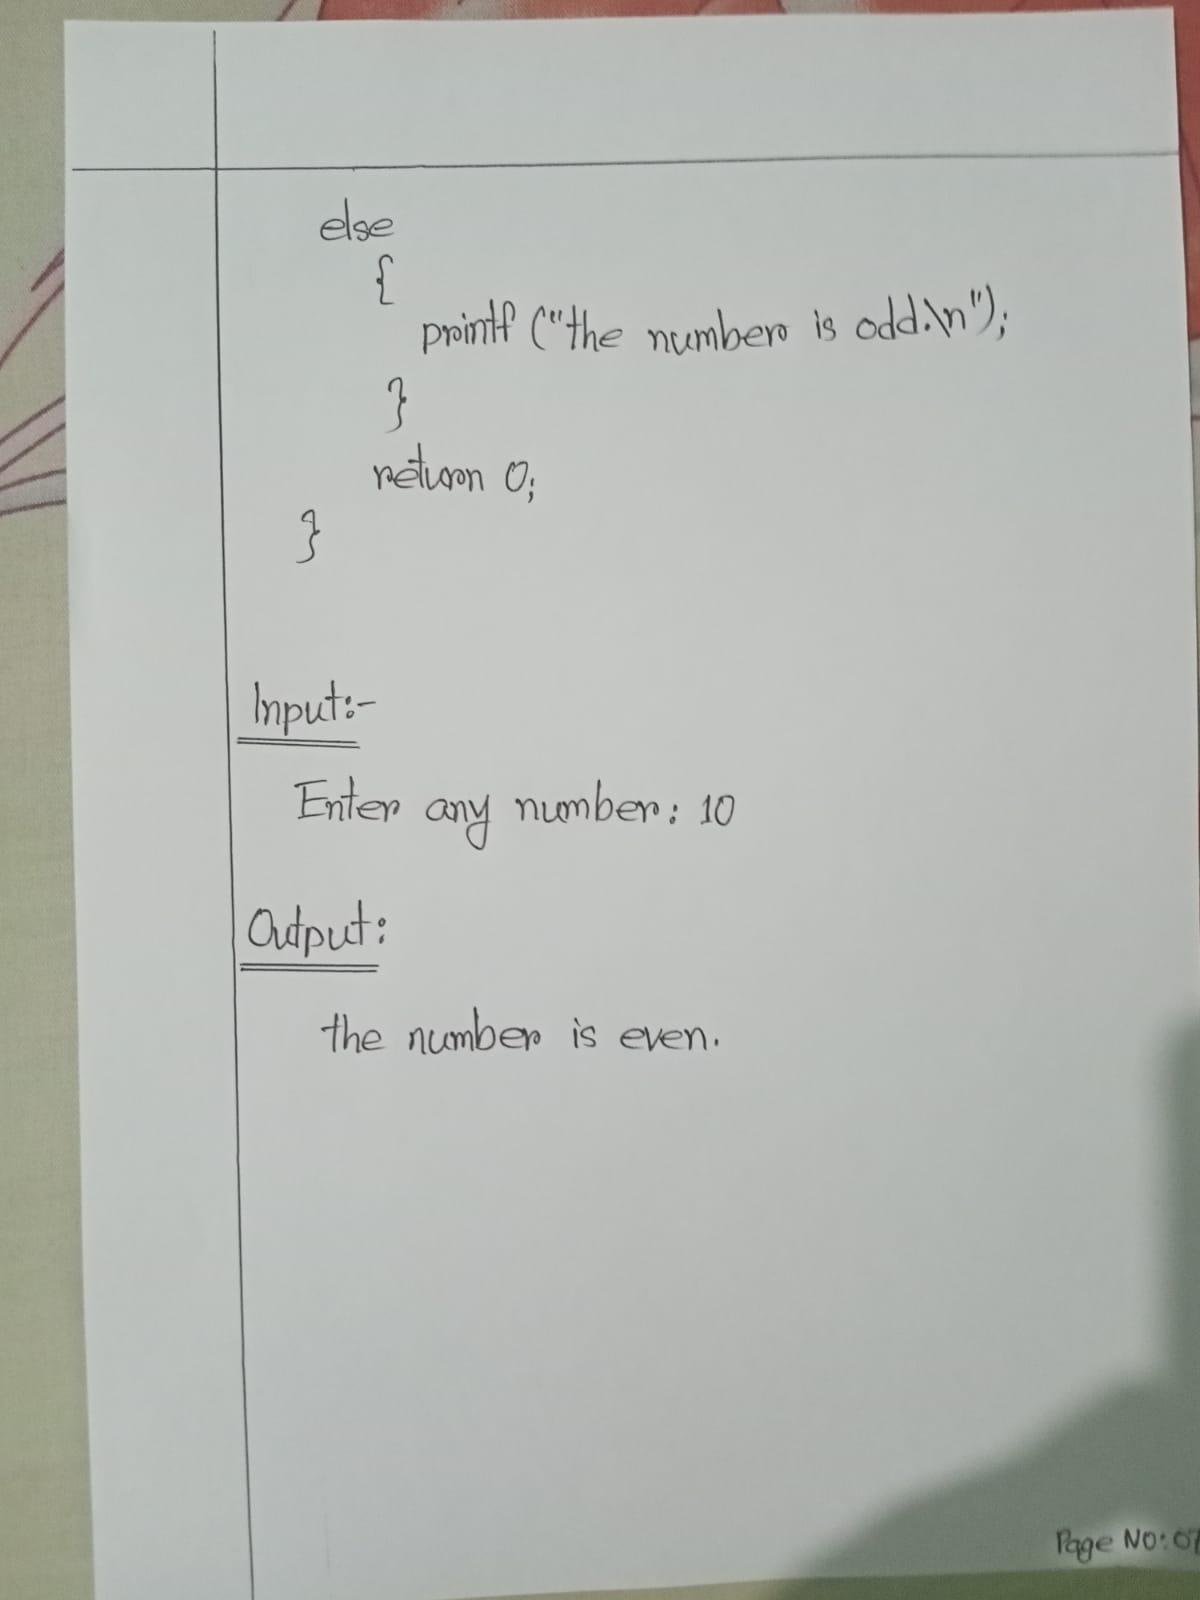 else
{
printf ("the number is odd.\n");
}
return 0;
}
Input:-
Enter any number: 10
Output:
the number is even.
Page No: 07